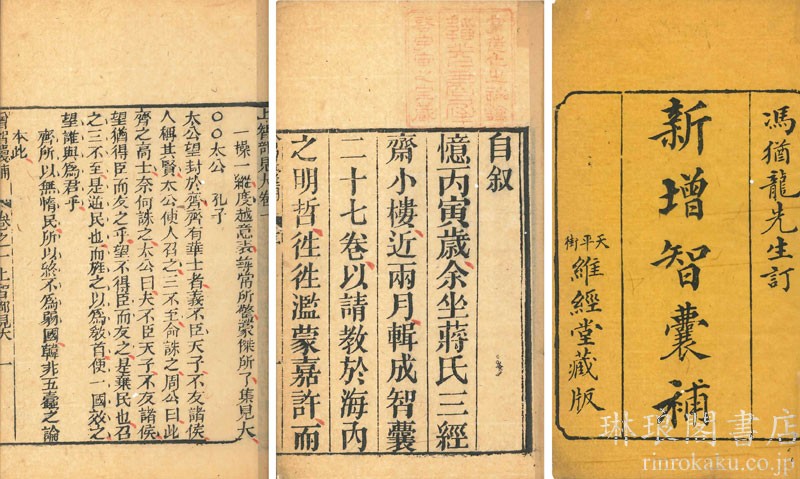 馮猶龍先生訂
新增智囊補
天平街
維經堂藏版
自叙
憶丙寅歲余坐蔣氏三經
齋小樓近兩月輯成智囊
二十七卷以請教於海內
之明哲徃徃濫蒙嘉許而
上智部見大卷一
一操一縱度越意表尋常所驚豪傑所了集見大
〇〇太公 孔子
太公望封於齊齊有華士者義不臣天子不友諸侯
人稱其賢太公使人召之三不至命誅之周公曰此
齊之高士奈何誅之太公曰夫不臣天子不友諸侯
望猶得臣而友之乎望不得臣而友之是棄民也召
之三不至是逆民也而旌之以為敎首使一國效之
望誰與為君乎
齊所以無惰民所以終不為弱國韓非五蠹之論
本此
卷之一上智部見大 一
琳琅閣書店
rinrokaku.co.jp